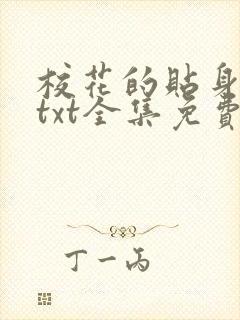 校花的貼身
txt全集免費
丁一丙